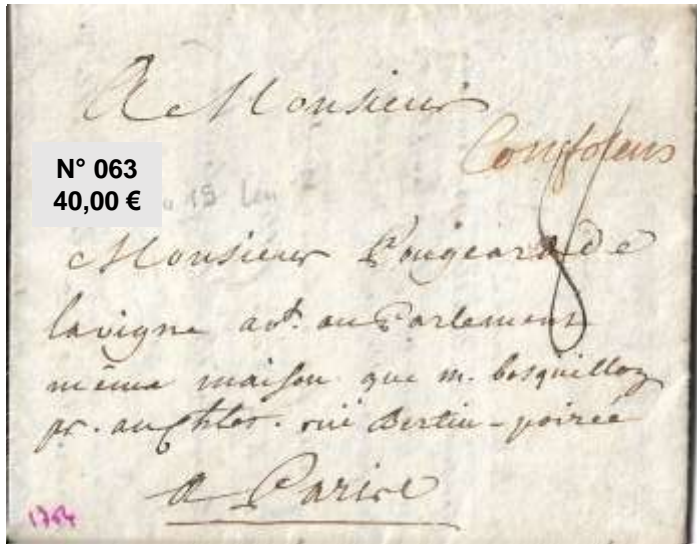 A Monsieur
Confolens
N° 063
40,00 €
8
Monsieur Fougeard de
lavigne avt. au Parlement
même maison que m. bosquillon
pr. au Chlet. rüe Bertin-poirée
a Paris
1764